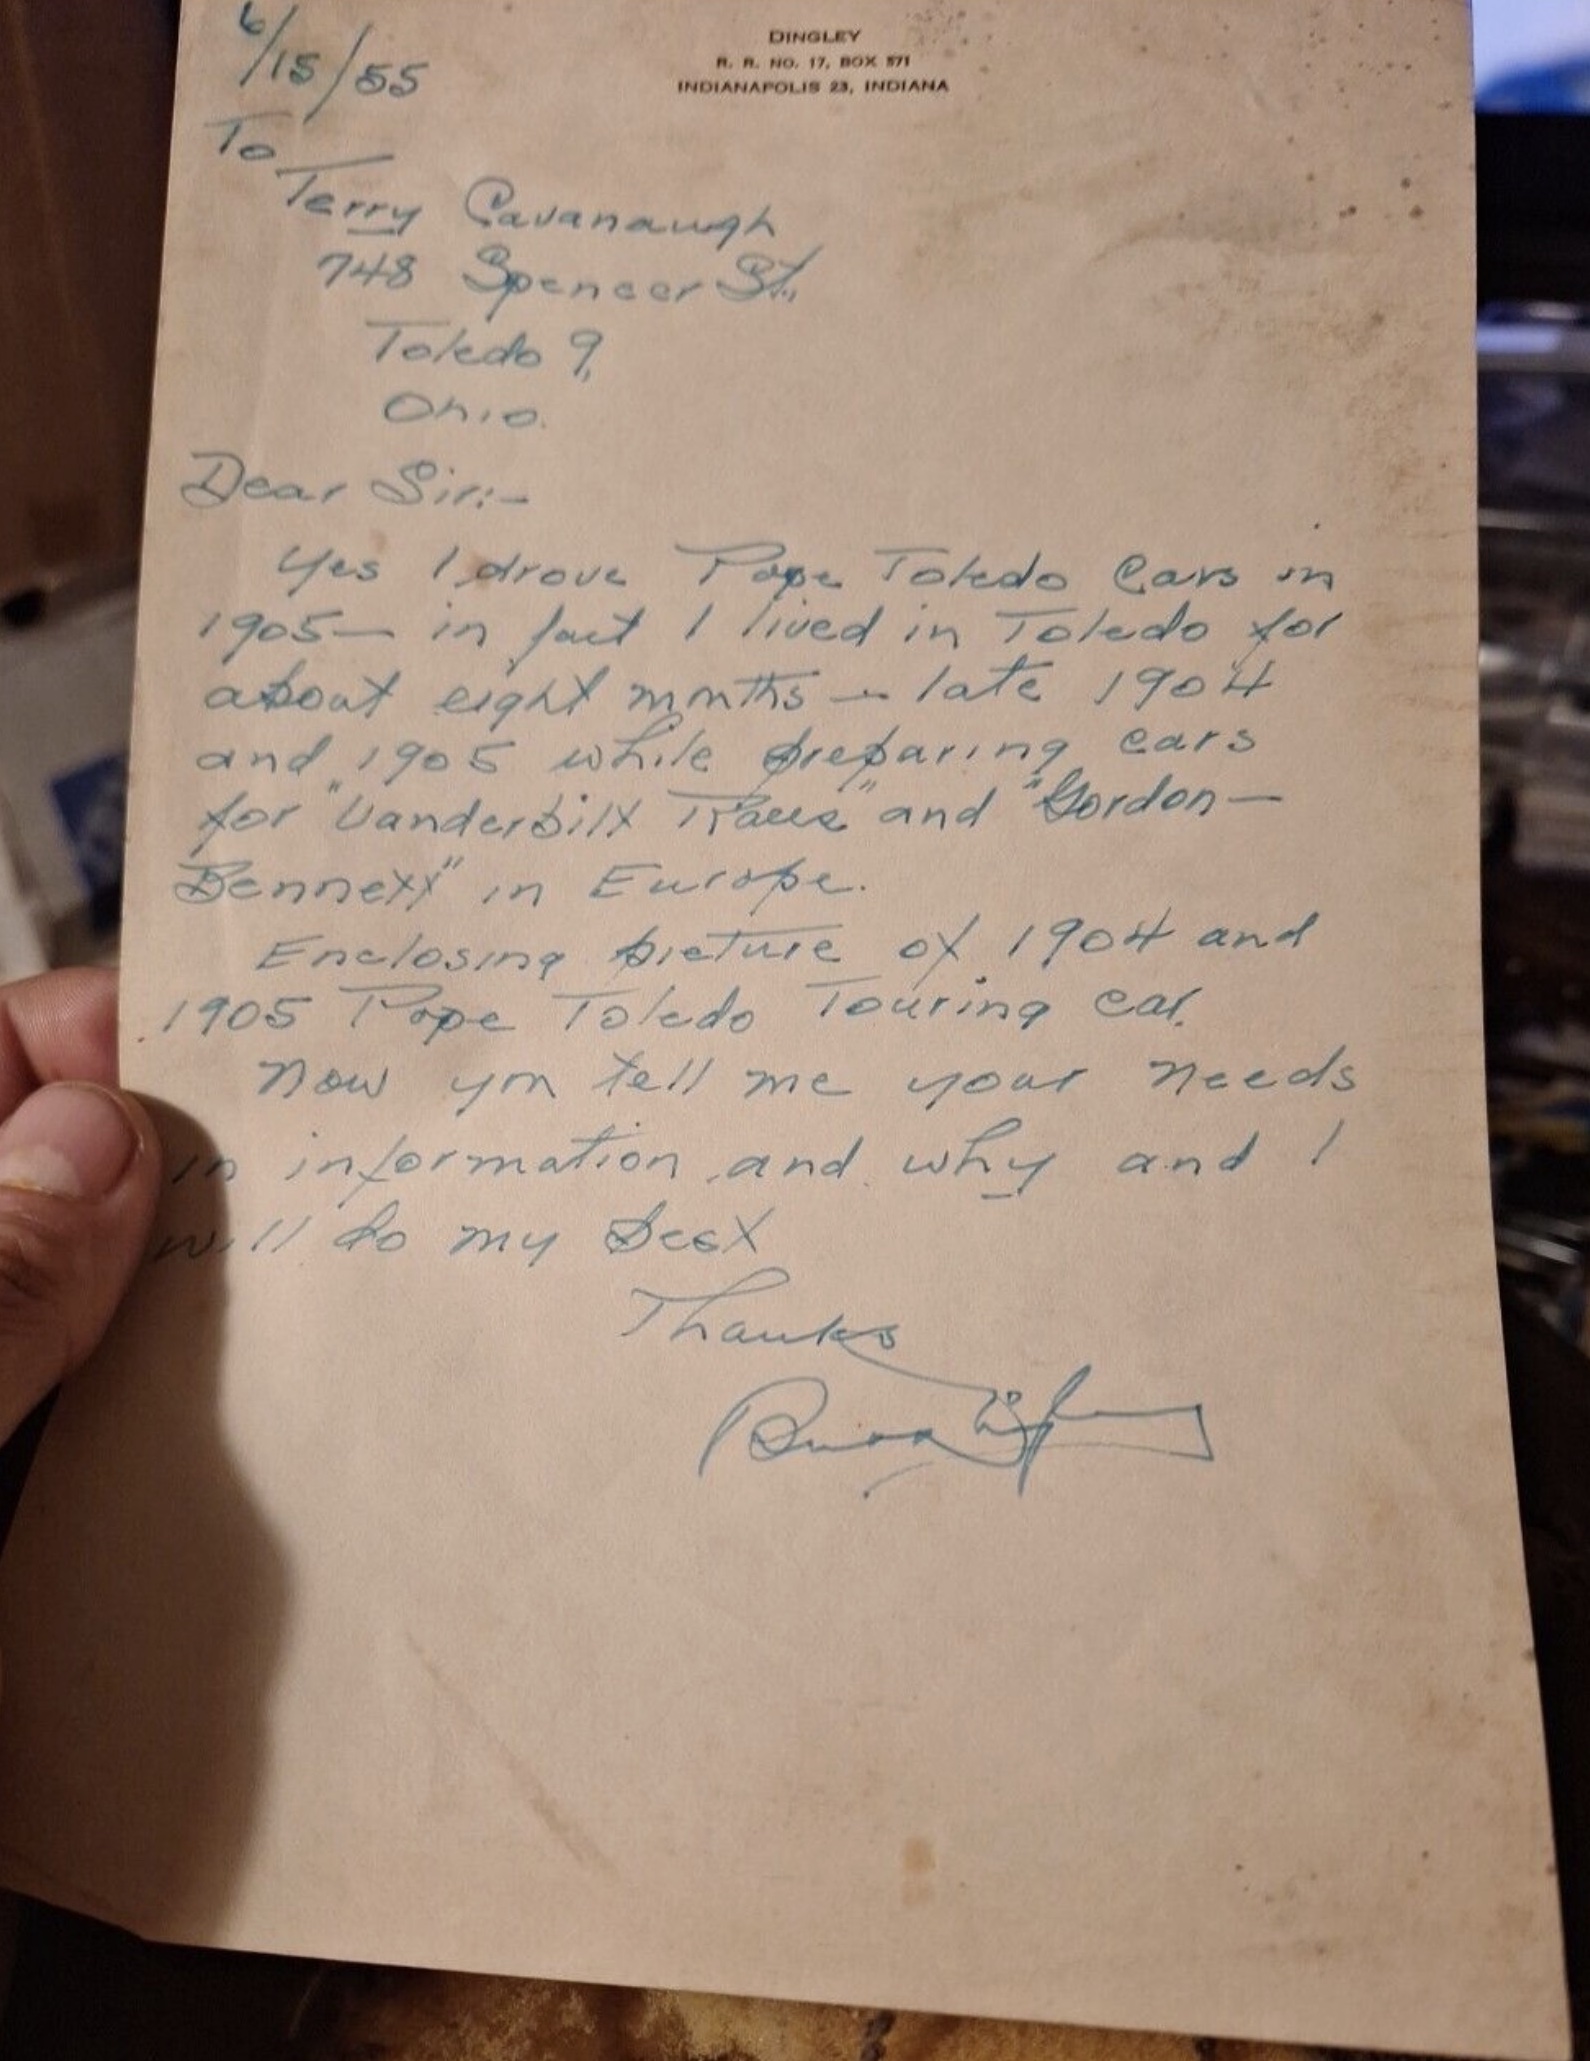 6/15/55
DINGLEY
R. R. NO. 17, BOX 571
INDIANAPOLIS 23, INDIANA
To
Terry Cavanaugh
748 Spencer St.,
Toledo 9,
Ohio.
Dear Sir:-
Yes I drove Pope Toledo Cars in
1905— in fact I lived in Toledo for
about eight months — late 1904
and 1905 while preparing cars
for "Vanderbilt Races" and "Gordon—
Bennett" in Europe.
Enclosing picture of 1904 and
1905 Pope Toledo Touring Car.
Now you tell me your needs
in information and why and I
will do my best
Thanks